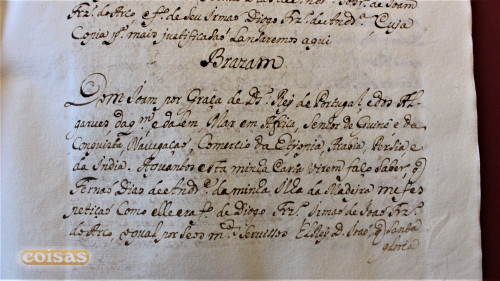 Frz.º do Arco, e fº. de Seu Irmaõ Diogo Frz.º de And.e Cuja
Copia pª. mais justificasaõ Lansaremos aqui
Brazam
Dom Joam por Graça de D.s Rey de Portugal, e dos Al-
garues daq.m e dalem Mar em Africa, Senhor de Guine e da
Conquista Nauegaçaõ, Comercio da Ethiopia Arabia Persia e
da India. Aquantos esta minha Carta virem faço saber, q
Fernaõ Dias de And.e da minha Ilha da Madeira me fes
petiçaõ Como elle era fº. de Diogo Frz.º Irmaõ de Joaõ Frz.º
do Arco, o qual por Seos m.tos Seruissos ElRey D. Joaõ, q Santa
gloria
coisas